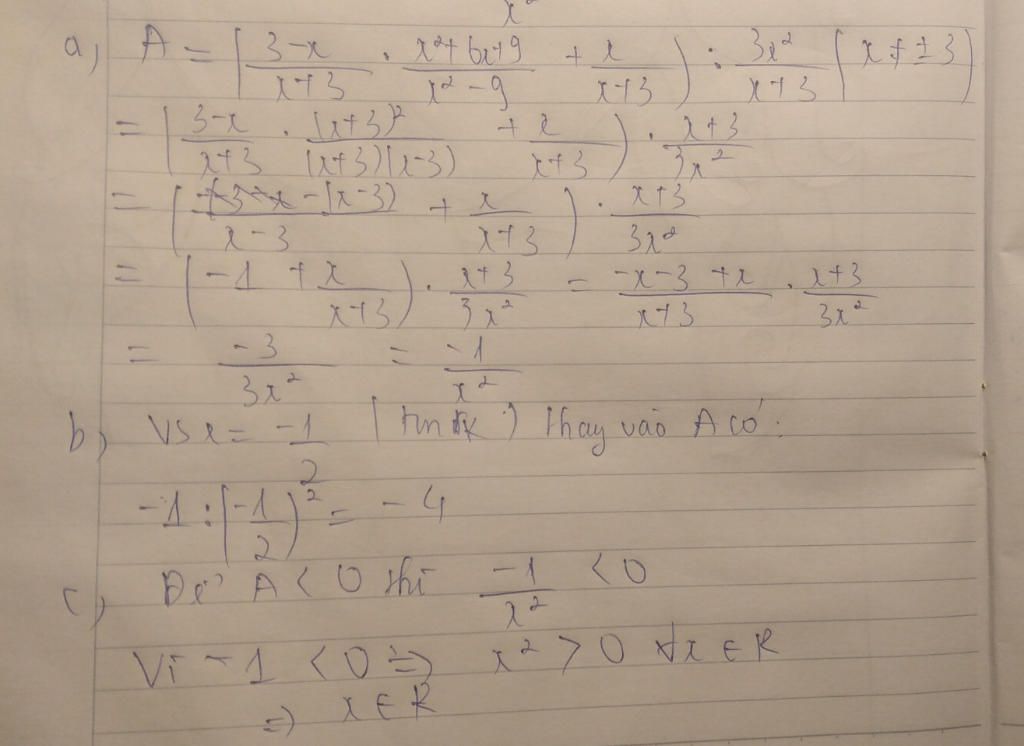 x²
a, A = ( 3-x/x+3 . x²+6x+9/x²-9 + x/x+3 ) : 3x²/x+3 ( x ≠ ± 3 )
= ( 3-x/x+3 . (x+3)²/(x+3)(x-3) + x/x+3 ) . x+3/3x²
= ( -(x-3)/x-3 + x/x+3 ) . x+3/3x²
= ( -1 + x/x+3 ) . x+3/3x² = -x-3+x/x+3 . x+3/3x²
= -3/3x² = -1/x²
b, Vs x = -1/2 ( tmđk ) thay vào A có :
-1 : ( -1/2 )² = -4
c, Để A < 0 thì -1/x² < 0
Vì -1 < 0 => x² > 0 ∀x ∈ R
=> x ∈ R